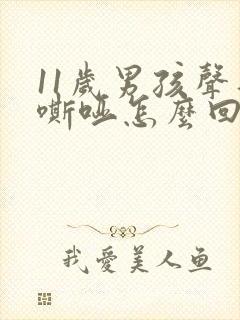 11歲男孩聲
嘶啞怎麼回
我愛美人鱼